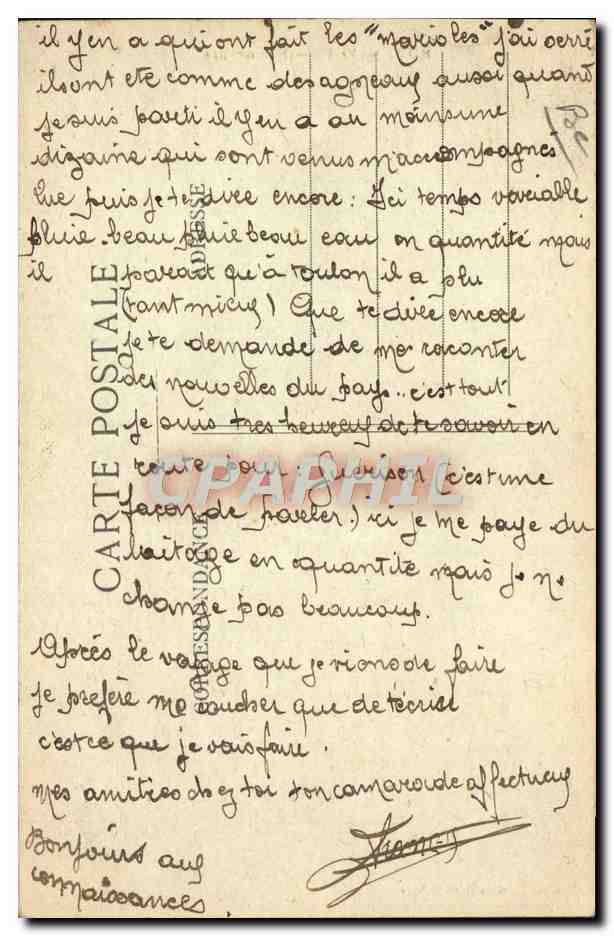 il y en a qui ont fait les "marioles" j'ai serré
ils ont eté comme des agneaux aussi quand
je suis parti il y en a au moins une
dizaine qui sont venus m'accompagnés
Que puis je te diré encore : Ici temps variable
pluie-beau pluie beau eau en quantité mais
il parait qu'à toulon il a plu
(tant mieux) Que te diré encore
je te demandé de me raconter
des nouvelles du pays.. c'est tout
je suis tres heureux de te savoir en
route pour Guerison (c'est une
façon de parler.) ici je me paye du
laitage en quantité mais je ne
change pas beaucoup.
Après le voyage que je viens de faire
je prefère me coucher que de t'écrire
c'est ce que je vais faire.
Mes amitiés chez toi ton camarade affectueux
Bonjours aux
connaissances.
Francis
CARTE POSTALE
CORRESPONDANCE
ADRESSE
CPAPHIL